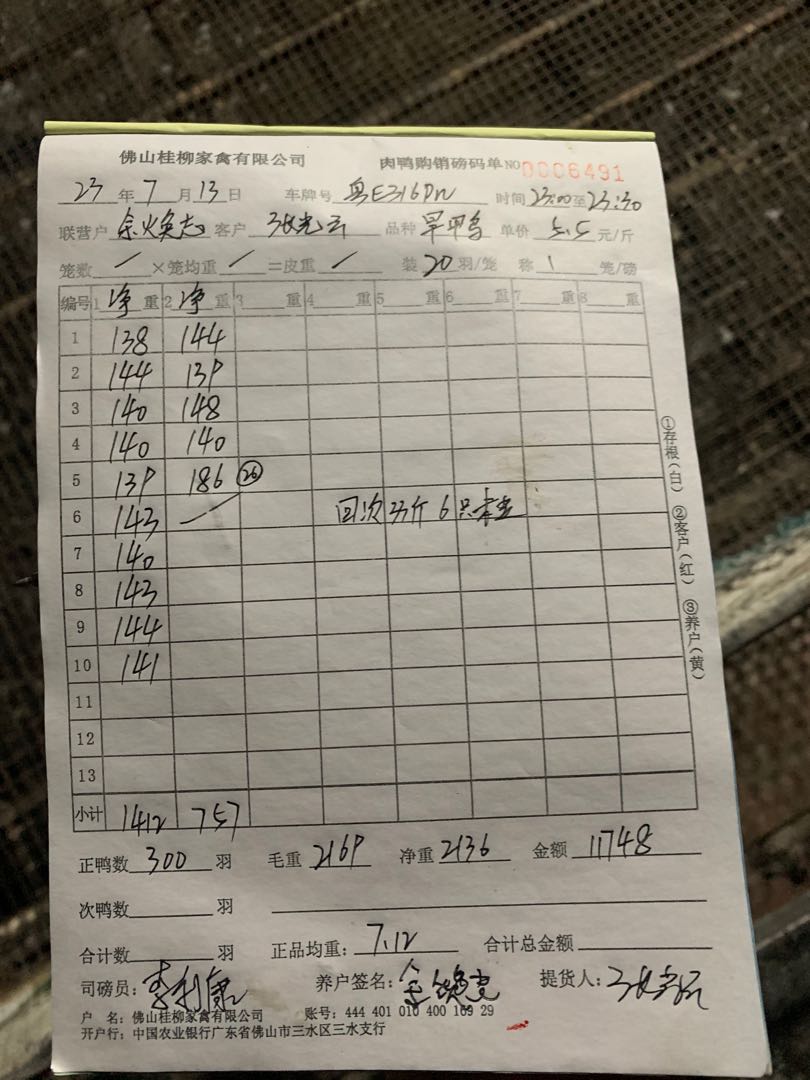 佛山桂柳家禽有限公司 肉鸭购销磅码单 NO 0006491
23 年 7 月 13 日 车牌号 粤E316DN 时间 23:00 至 23:30
联营户 客户 张光云 品种 旱鸭 单价 5.5 元/斤
笼数 / ×笼均重 / =皮重 / 装 20 羽/笼 称 1 笼/磅
编号 1 净 重 2 净 重 3 重 4 重 5 重 6 重 7 重 8 重
1 138 144
2 144 139
3 140 148
4 140 140
5 139 186 26
6 143 回次 33斤 6只
7 140
8 143
9 144
10 141
11
12
13
小计 1412 757
正鸭数 300 羽 毛重 2169 净重 2136 金额 11748
次鸭数 羽
合计数 羽 正品均重: 7.12 合计总金额
司磅员: 李利康 养户签名: 提货人:
户 名: 佛山桂柳家禽有限公司 账号: 444 401 010 400 169 29
开户行: 中国农业银行广东省佛山市三水区三水支行
①存根(白) ②客户(红) ③养户(黄)